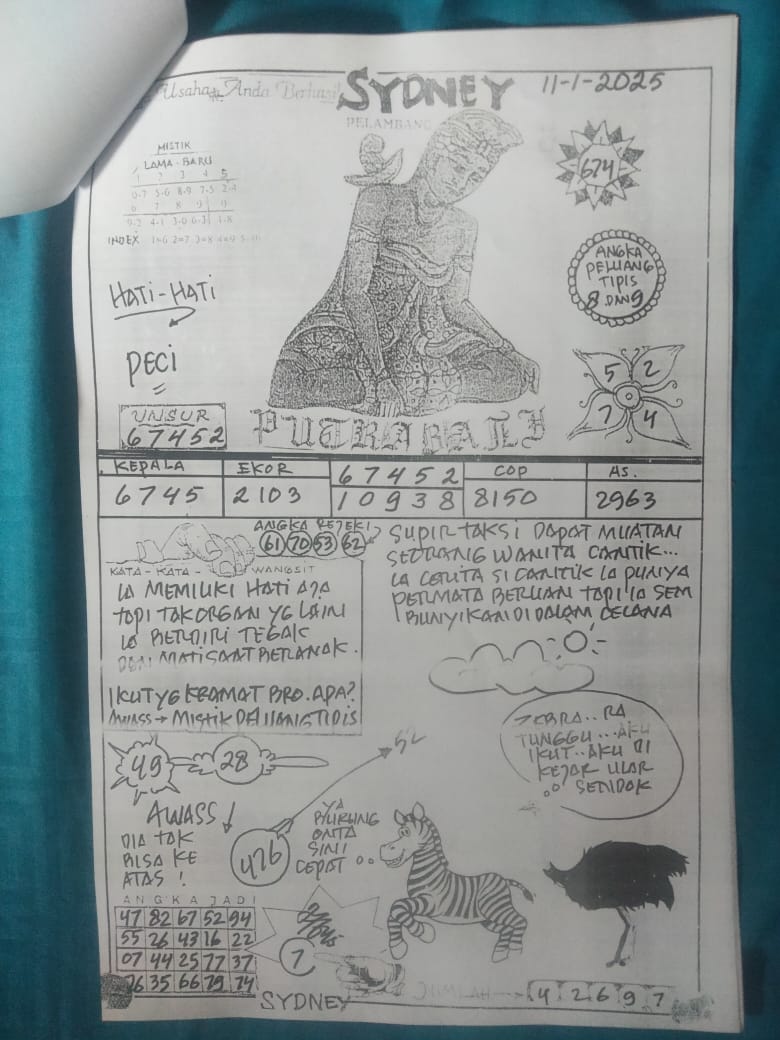 Usaha Anda Berhasil
SYDNEY
11-1-2025
PELAMBANG
MISTIK
LAMA - BARU
1 2 3 4 5
0-7 5-6 8-9 7-5 2-4
6 7 8 9 0
9-2 4-1 3-0 6-3 1-8
INDEX 1=6 2=7 3=8 4=9 5=0
674
ANGKA
PELUANG
TIPIS
8 DAN 9
HATI-HATI
PECI
5 2
7 4
UNSUR
67452
PUTRA BALI
KEPALA EKOR 67452 COP AS.
6745 2103 10938 8150 2963
ANGKA REJEKI
61 70 53 62
KATA - KATA - WANGSIT
IA MEMILIKI HATI
TAPI TAK ORGAN YG LAIN
IA BERDIRI TEGAK
DAN MATI SAAT BERANAK.
IKUT YG KERAMAT BRO. APA?
AWASS → MISTIK PELUANG TIPIS
SUPIR TAKSI DAPAT MUATAN
SEORANG WANITA CANTIK...
IA CERITA SI CANTIK IA PUNYA
PERMATA BERLIAN TAPI IA SEM
BUNYIKAN DI DALAM CELANA
49
28
52
ZEBRA.. RA
TUNGGU...AKU
IKUT..AKU DI
KEJAR ULAR
SENDOK
AWASS
DIA TAK
BISA KE
ATAS !
476
YA
BURUNG
ONTA
SINI
CEPAT
ANGKA JADI
47 82 67 52 94
55 26 43 16 22
07 44 25 77 37
76 35 66 79 74
7
JUMLAH → 4 2 6 9 7
SYDNEY